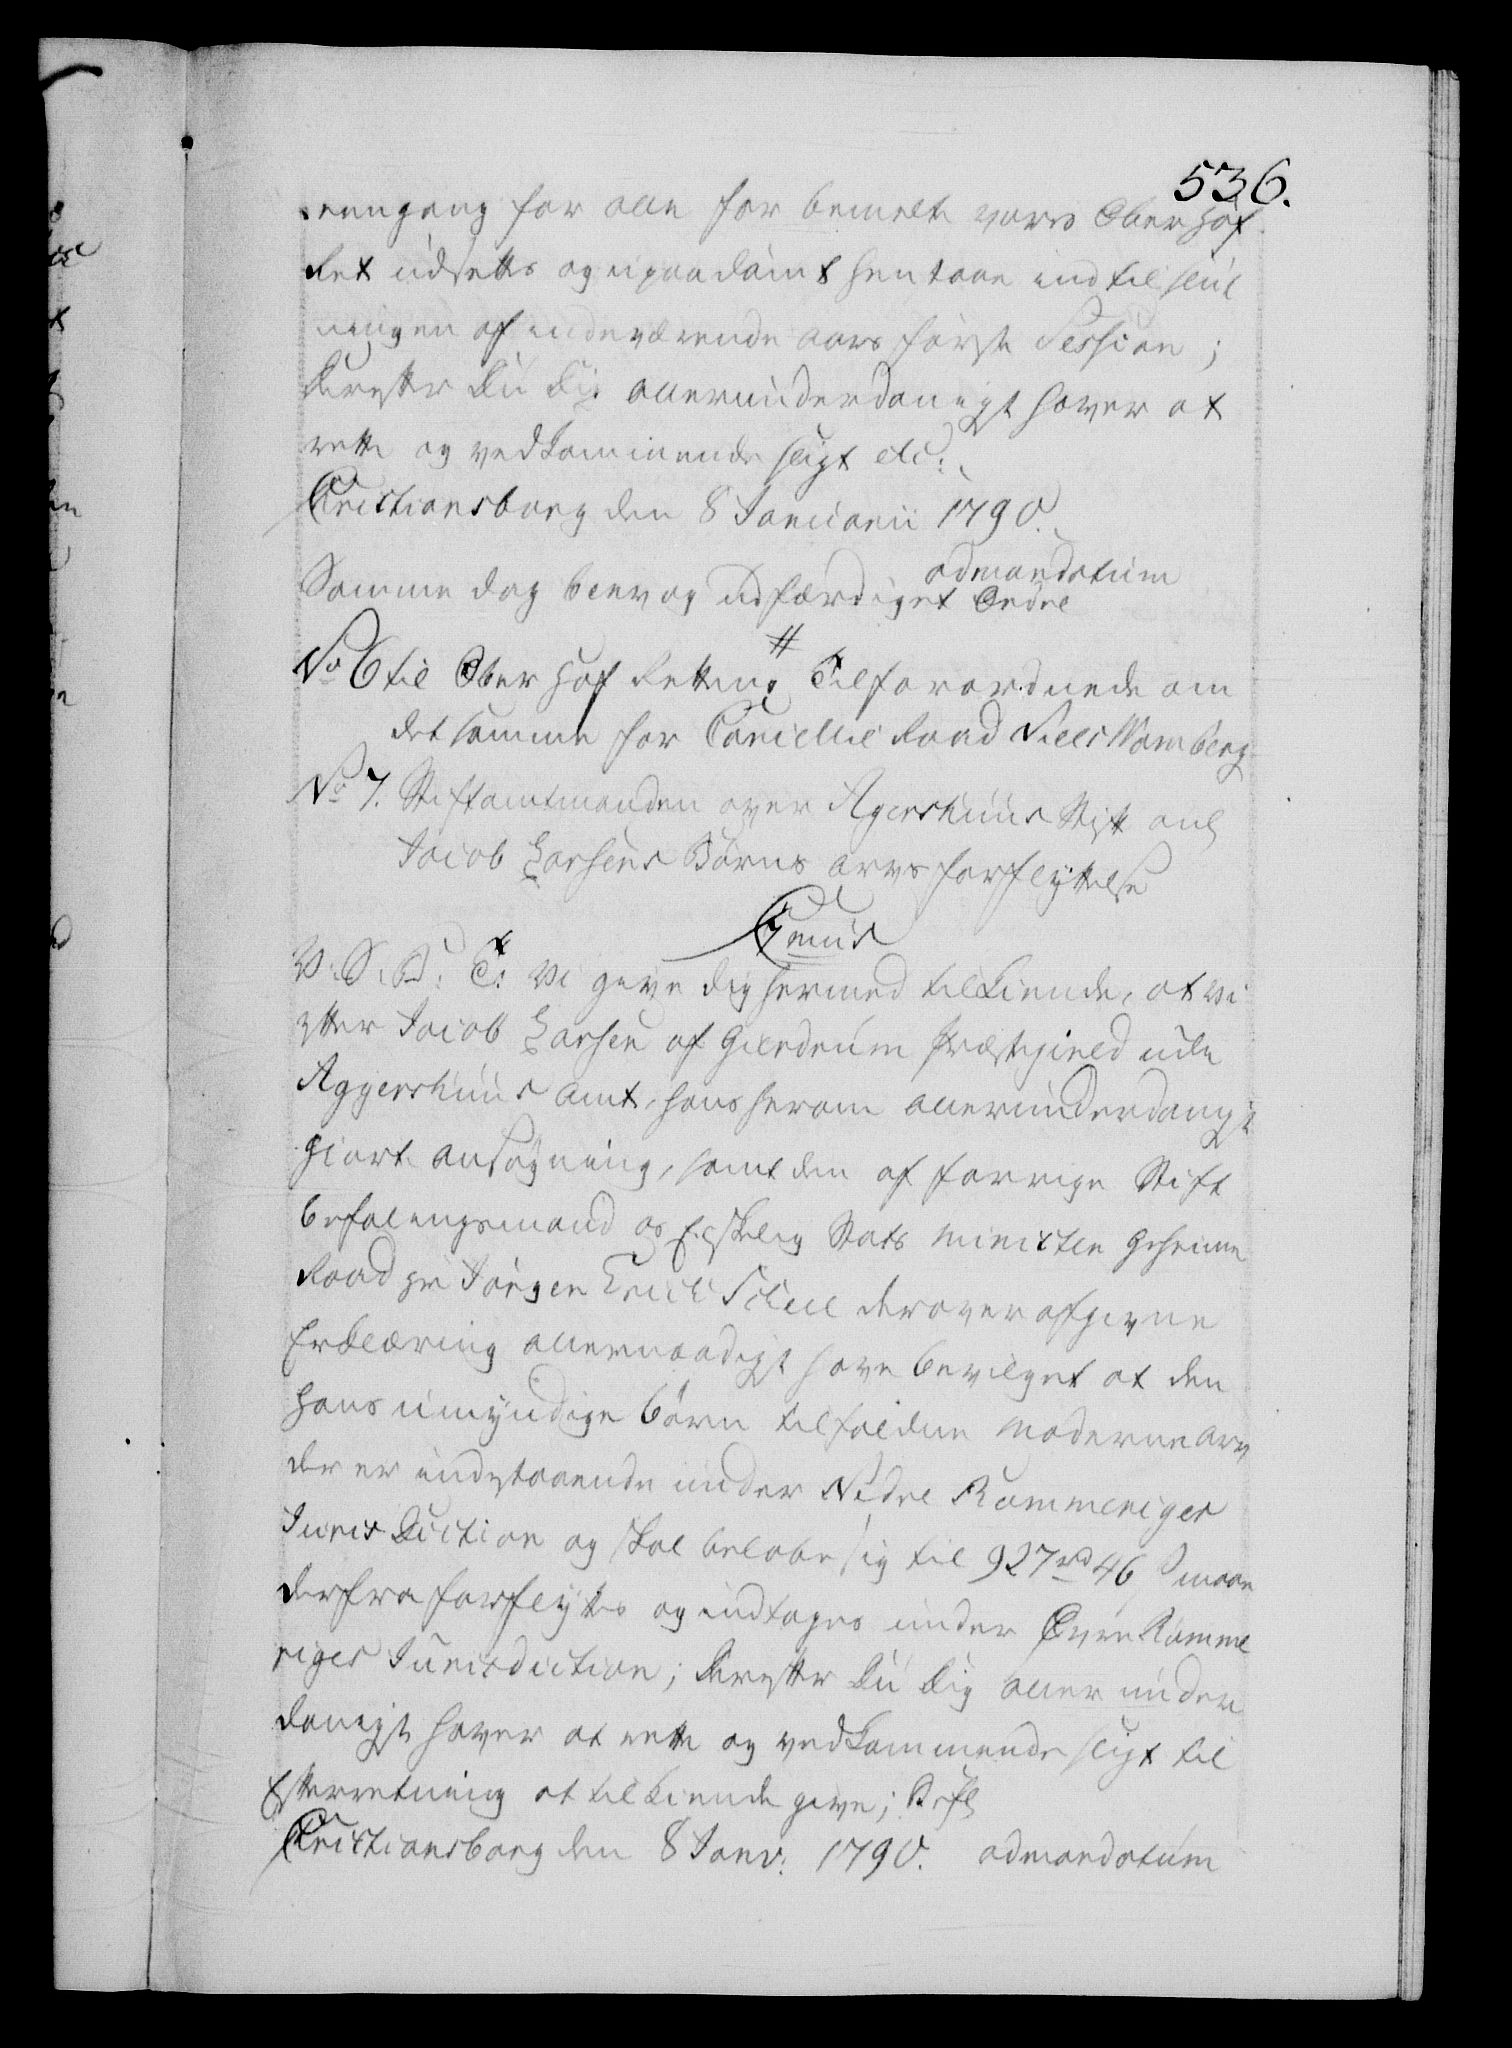 536.
eengang for alle for bemelte vores Ober Hof
Ret udsættes og upaadømt henstaae indtil slut
ningen af indeværende aars første Session;
Derefter Du Dig allerunderdanigst haver at
rette og vedkommende sligt etc:
Christiansborg den 8 Januarii 1790.
admandatum
Samme dag blev og udfærdiget Ordre
No 6 til Ober Hof Rettens Tilforordnede om
det samme for Cancellie Raad Niels Wamberg
No 7. Stiftamtmanden over Agershuus Stift anl
Jacob Larsens Børns arvs forflyttelse
Cmus
V. S. B: T: Vi give dig hermed tilkiende, at vi
efter Jacob Larsen af Gierdrum Præstegield udi
Aggershuus Amt, hans herom allerunderdanigst
giorte ansøgning, samt den af forrige Stift
befalingsmand os Elskelig Stats Minister Geheime
Raad Hr Jørgen Erich Scheel derover afgivne
Erklæring allernaadigst have bevilget at den
hans umyndige børn tilfaldne Moderne Arv
der er indestaaende under Nedre Rommeriges
Jurisdiction og skal beløbe sig til 927 rd 46 s maae
derfra forflyttes og indtages under Øvre Romme
riges Jurisdiction; Derefter Du Dig aller under
danigst haver at rette og vedkommende sligt til
Efterretning at tilkiende give; Befl
Christiansborg den 8 Janv: 1790. admandatum